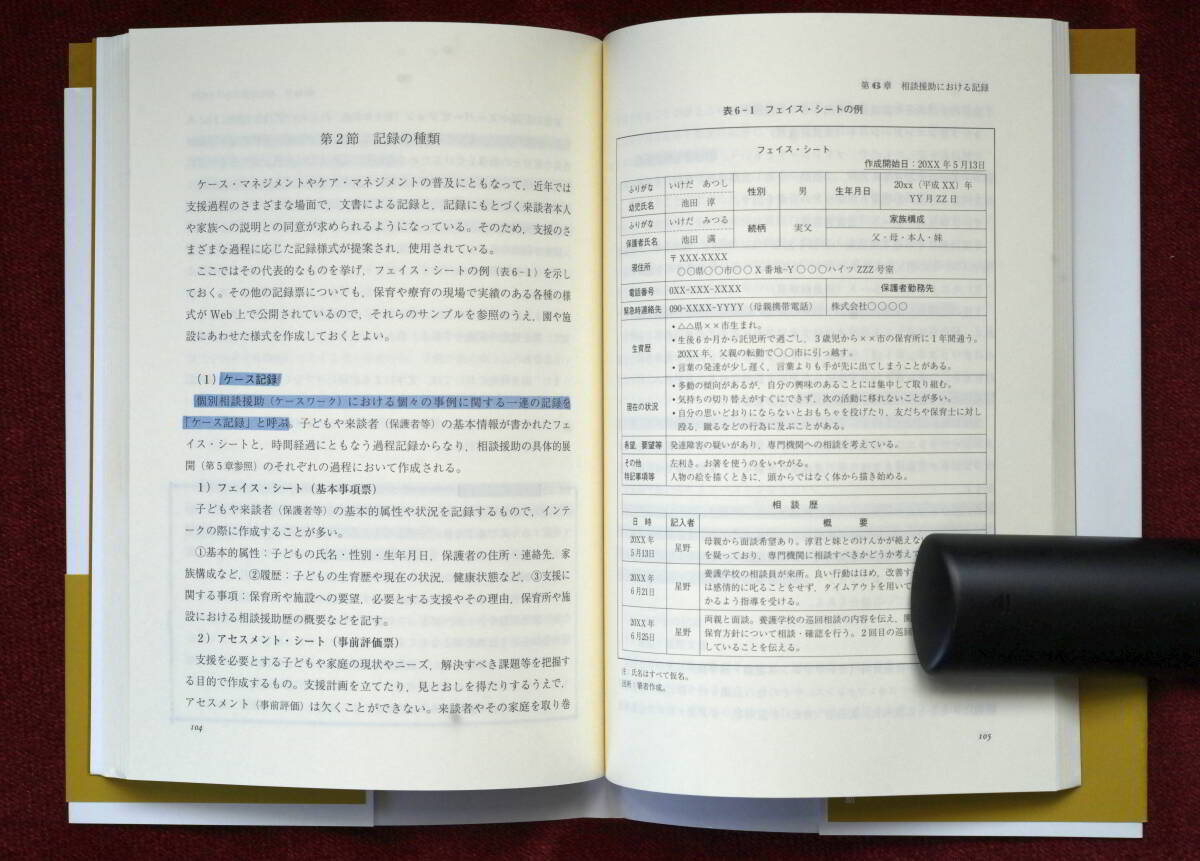 第2節 記録の種類
ケース・マネジメントやケア・マネジメントの普及にともなって，近年では
支援過程のさまざまな場面で，文書による記録と，記録にもとづく来談者本人
や家族への説明との同意が求められるようになっている。そのため，支援のさ
まざまな過程に応じた記録様式が提案され，使用されている。
ここではその代表的なものを挙げ，フェイス・シートの例（表6-1）を示し
ておく。その他の記録票についても，保育や療育の現場で実績のある各種の様
式がWeb上で公開されているので，それらのサンプルを参照のうえ，園や施
設にあわせた様式を作成しておくとよい。
（1）ケース記録
個別相談援助（ケースワーク）における個々の事例に関する一連の記録を
「ケース記録」と呼ぶ。子どもや来談者（保護者等）の基本情報が書かれたフェ
イス・シートと，時間経過にともなう過程記録からなり，相談援助の具体的展
開（第5章参照）のそれぞれの過程において作成される。
1）フェイス・シート（基本事項票）
子どもや来談者（保護者等）の基本的属性や状況を記録するもので，インテ
ークの際に作成することが多い。
①基本的属性：子どもの氏名・性別・生年月日，保護者の住所・連絡先，家
族構成など，②履歴：子どもの生育歴や現在の状況，健康状態など，③支援に
関する事項：保育所や施設への要望，必要とする支援やその理由，保育所や施
設における相談援助歴の概要などを記す。
2）アセスメント・シート（事前評価票）
支援を必要とする子どもや家庭の現状やニーズ，解決すべき課題等を把握す
る目的で作成するもの。支援計画を立てたり，見とおしを得たりするうえで，
アセスメント（事前評価）は欠くことができない。来談者やその家庭を取り巻
104
第6章 相談援助における記録
表6-1 フェイス・シートの例
フェイス・シート
作成開始日：20XX年5月13日
ふりがな いけだ あつし 性別 男 生年月日 20xx（平成XX）年
YY月ZZ日
幼児氏名 池田 淳
ふりがな いけだ みつる 続柄 実父 家族構成
保護者氏名 池田 満 父・母・本人・妹
現住所 〒XXX-XXXX
○○県○○市○○X番地-Y○○○ハイツZZZ号室
電話番号 0XX-XXX-XXXX 保護者勤務先
緊急時連絡先 090-XXXX-YYYY（母親携帯電話） 株式会社○○○○
生育歴 ・△△県××市生まれ。
・生後6か月から託児所で過ごし，3歳児から××市の保育所に1年間通う。
20XX年，父親の転勤で○○市に引っ越す。
・言葉の発達が少し遅く，言葉よりも手が先に出てしまうことがある。
現在の状況 ・多動の傾向があるが，自分の興味のあることには集中して取り組む。
・気持ちの切り替えがすぐにできず，次の活動に移れないことが多い。
・自分の思いどおりにならないとおもちゃを投げたり，友だちや保育士に対し
殴る，蹴るなどの行為に及ぶことがある。
希望，要望等 発達障害の疑いがあり，専門機関への相談を考えている。
その他
特記事項等 左利き。お箸を使うのをいやがる。
人物の絵を描くときに，頭からではなく体から描き始める。
相談歴
日時 記入者 概要
20XX年
5月13日 星野 母親から面談希望あり。淳君と妹とのけんかが絶えな
を疑っており，専門機関に相談すべきかどうか考えて
20XX年
6月21日 星野 養護学校の相談員が来所。良い行動はほめ，改善す
は感情的に叱ることをせず，タイムアウトを用いて
かるよう指導を受ける。
20XX年
6月25日 星野 両親と面談。養護学校の巡回相談の内容を伝え，
保育方針について相談・確認を行う。2回目の巡回
していることを伝える。
注：氏名はすべて仮名。
出所：筆者作成。
105